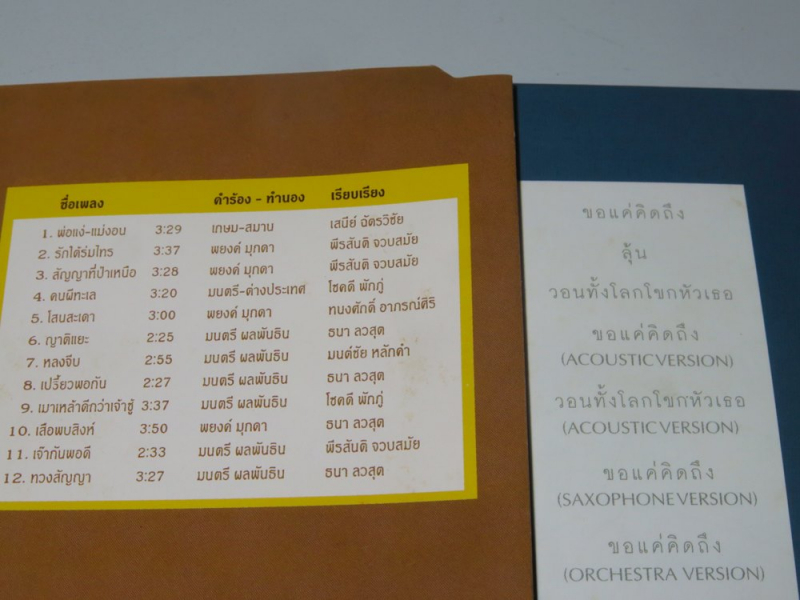 ชื่อเพลง คำร้อง - ทำนอง เรียบเรียง
1. พ่อแง่-แม่งอน 3:29 เกษม-สมาน เสนีย์ ฉัตรวิชัย
2. รักใต้ร่มไทร 3:37 พยงค์ มุกดา พีรสันติ จวบสมัย
3. สัญญาที่ป่าเหนือ 3:28 พยงค์ มุกดา พีรสันติ จวบสมัย
4. คนผีทะเล 3:20 มนตรี-ต่างประเทศ โชคดี พักภู่
5. โสนสะเดา 3:00 พยงค์ มุกดา ทนงศักดิ์ อาภรณ์ศิริ
6. ญาติแยะ 2:25 มนตรี ผลพันธิน ธนา ลวสุต
7. หลงจีบ 2:55 มนตรี ผลพันธิน มนต์ชัย หลักคำ
8. เปรี้ยวพอกัน 2:27 มนตรี ผลพันธิน ธนา ลวสุต
9. เมาเหล้าดีกว่าเจ้าชู้ 3:37 มนตรี ผลพันธิน โชคดี พักภู่
10. เสือพบสิงห์ 3:50 พยงค์ มุกดา ธนา ลวสุต
11. เจ้ากันพอดี 2:33 มนตรี ผลพันธิน พีรสันติ จวบสมัย
12. ทวงสัญญา 3:27 มนตรี ผลพันธิน ธนา ลวสุต
ขอแค่คิดถึง
ลุ้น
วอนทั้งโลกโขกหัวเธอ
ขอแค่คิดถึง
(ACOUSTIC VERSION)
วอนทั้งโลกโขกหัวเธอ
(ACOUSTIC VERSION)
ขอแค่คิดถึง
(SAXOPHONE VERSION)
ขอแค่คิดถึง
(ORCHESTRA VERSION)